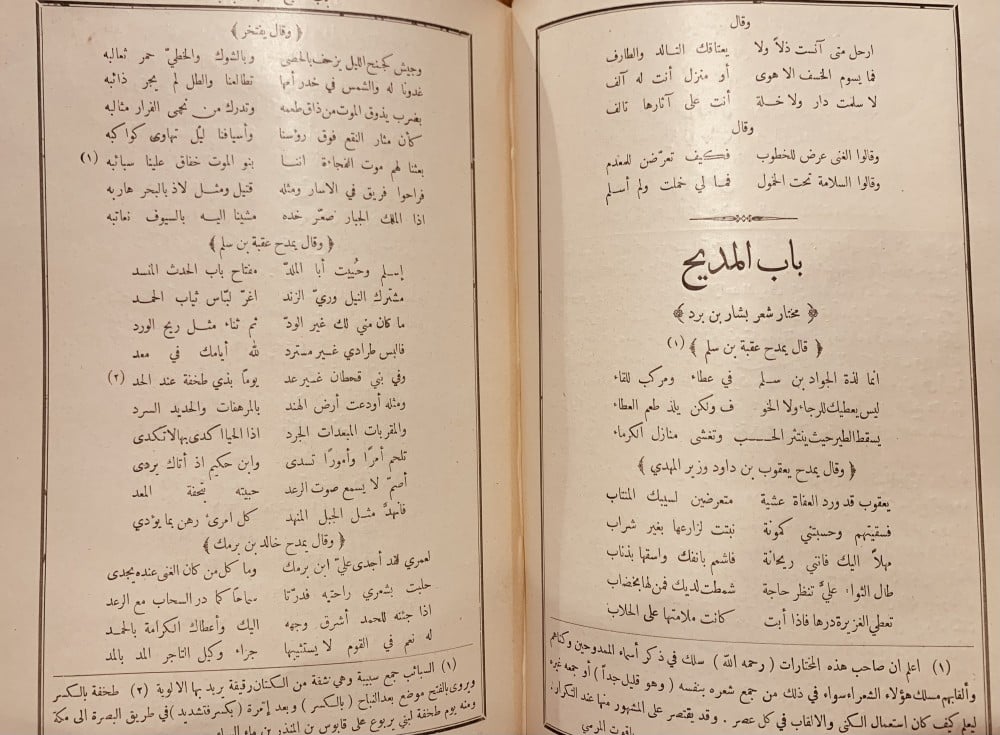 وقال
ارحل متى آنست ذلاً ولا يعتاقك التالد والطارف
فما يسوم الخسف الا هوى أو منزل أنت له آلف
لا سلمت دار ولا خلة أنت على آثارها تالف
وقال
وقالوا الغنى عرض للخطوب فكيف تعرّضن للمعدم
وقالوا السلامة تحت الخمول فما لي خملت ولم أسلم
باب المديح
﴿ مختار شعر بشار بن برد ﴾
﴿ قال يمدح عقبة بن سلم ﴾ (١)
انما لذة الجواد بن سلم في عطاء ومركب للقاء
ليس يعطيك للرجاء ولا الخو ف ولكن يلذ طعم العطاء
يسقط الطير حيث ينتثر الحـــب وتغشى منازل الكرماء
﴿ وقال يمدح يعقوب بن داود وزير المهدي ﴾
يعقوب قد ورد العفاة عشية متعرضين لسيبك المنتاب
فسقيتهم وحسبتني كمونة نبتت لزارعها بغير شراب
مهلاً اليك فانني ريحانة فاشمم بانفك واسقها بذناب
طال الثواء عليَّ تنظر حاجة شمطت لديك فمن لها بخضاب
تعطي الغزيرة درها فاذا أبت كانت ملامتها على الحلاب
(١) اعلم ان صاحب هذه المختارات ( رحمه الله ) سلك في ذكر أسماء الممدوحين وكناهم
وألقابهم مسلك هؤلاء الشعراء سواء في ذلك من جمع شعره بنفسه ( وهو قليل جداً ) أو جمعه غيره
ليعلم كيف كان استعمال الكنى والالقاب في كل عصر . وقد يقتصر على المشهور منها عند التكرار .
ياقوت المرسي
﴿ وقال يفتخر ﴾
وجيش كجنح الليل يزحف بالحصى وبالشوك والخطيّ حمر ثعالبه
غدونا له والشمس في خدر أمها تطالعنا والطل لم يجر ذائبه
بضرب يذوق الموت من ذاق طعمه وتدرك من نجى الفرار مثالبه
كأن مثار النقع فوق رؤسنا وأسيافنا ليل تهاوى كواكبه
بعثنا لهم موت الفجاءة اننا بنو الموت خفاق علينا سبائبه (١)
فراحوا فريق في الاسار ومثله قتيل ومثل لاذ بالبحر هاربه
اذا الملك الجبار صعّر خده مشينا اليه بالسيوف نعاتبه
﴿ وقال يمدح عقبة بن سلم ﴾
إسلم وحُييت أبا الملدّ مفتاح باب الحدث المنسد
مشترك النيل وريّ الزند اغرّ لبّاس ثياب الحمد
ما كان مني لك غير الودّ ثم ثناء مثل ريح الورد
فالبس طرادي غير مسترد لله أيامك في معد
وفي بني قحطان غير عد يوماً بذي طخفة عند الحد (٢)
ومثله أودعت أرض الهند بالمرهفات والحديد السرد
والمقربات المبعدات الجرد اذا الحيا اكدى بها لا تكدى
تلحم أمرًا وأمورًا تسدى وابن حكيم اذ أتاك يردى
أصمّ لا يسمع صوت الرعد حييته بتحفة المعد
فانهدّ مثل الجبل المنهد كل امرئ رهن بما يؤدي
﴿ وقال يمدح خالد بن برمك ﴾
لعمري لقد أجدى عليّ ابن برمك وما كل من كان الغنى عنده يجدى
حلبت بشعري راحتيه فدرّتا سماحًا كما در السحاب مع الرعد
اذا جئته للحمد أشرق وجهه اليك وأعطاك الكرامة بالحمد
له نعم في القوم لا يستثيبها جزاء وكيل التاجر المد بالمد
(١) السبائب جمع سبيبة وهي شقة من الكتان رقيقة يريد بها الالوية (٢) طخفة بالكسر
ويروى بالفتح موضع بعد النباح ( بالكسر ) وبعد إمرة ( بكسر فتشديد ) في طريق البصرة الى مكة
ومنه يوم طخفة لبني يربوع على قابوس بن المنذر بن ماء السماء